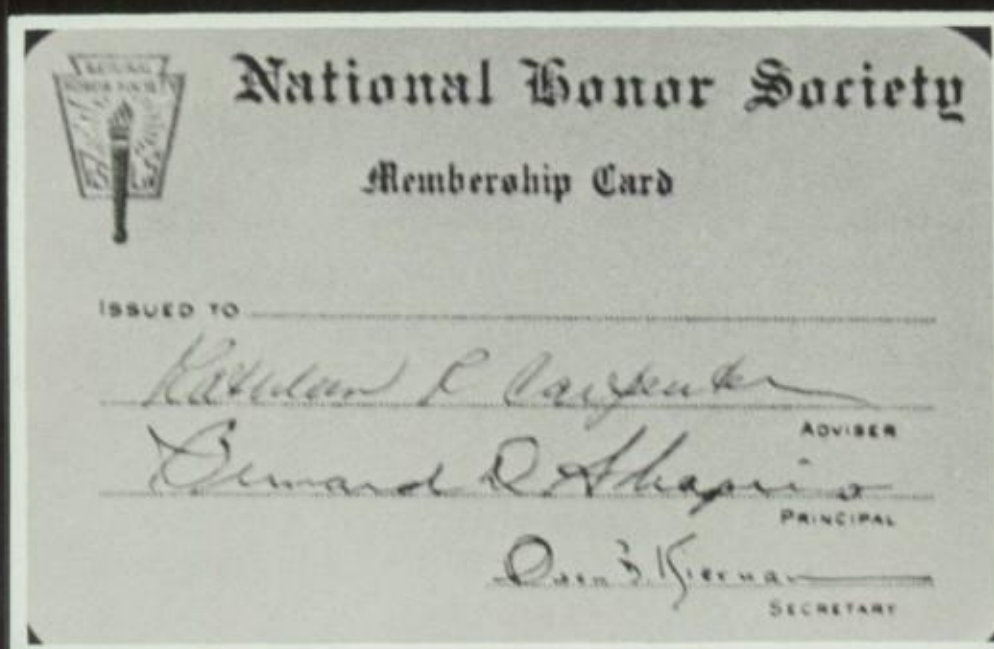 NATIONAL
HONOR SOCIETY
National Honor Society
Membership Card
ISSUED TO
Kathleen R Carpenter
ADVISER
Bernard D Shapiro
PRINCIPAL
Owen B. Kiernan
SECRETARY